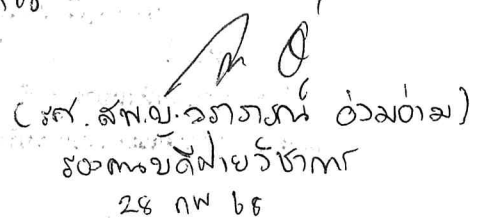 (รศ.สพ.ญ.วราภรณ์ อ่วมอ่าม)
รองคณบดีฝ่ายวิชาการ
28 กพ 68